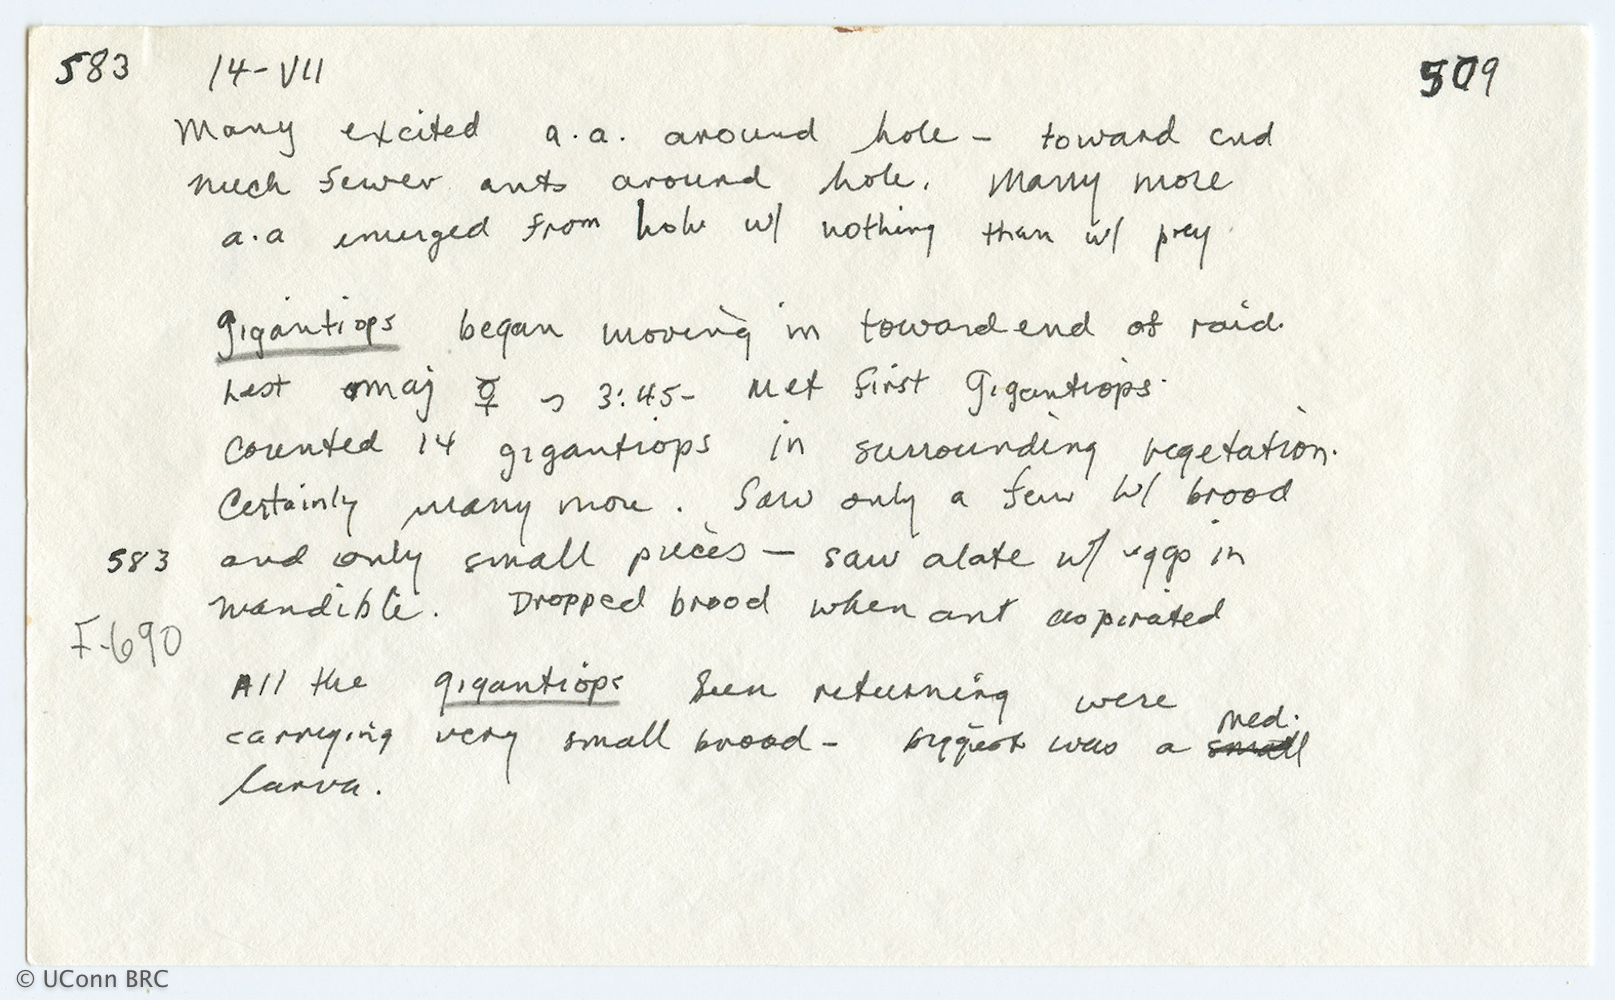 583 14-VII 509
Many excited a.a. around hole - toward end
much fewer ants around hole. Many more
a.a emerged from hole w/ nothing than w/ prey
Gigantiops began moving in toward end of raid.
Last maj ☿ 3:45- Met first Gigantiops.
Counted 14 gigantiops in surrounding vegetation.
Certainly many more. Saw only a few w/ brood
583 and only small pieces — saw alate w/ eggs in
mandible. Dropped brood when ant aspirated
F-690
All the gigantiops seen returning were
carrying very small brood - biggest was a med.
larva.
© UConn BRC